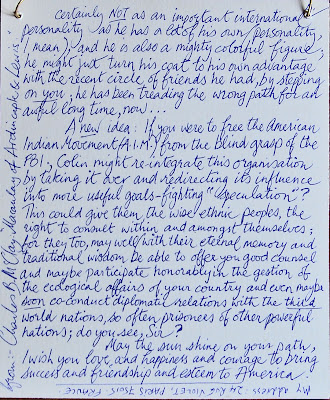 certainly NOT as an important international
personality as he has a lot of his own (personality,
I mean), and he is also a mighty colorful figure,
he might just turn his coat to his own advantage
with the recent circle of friends he had, by stepping
on you; he has been treading the wrong path for an
awful long time, now...
A new idea: If you were to free the American
Indian Movement (A.I.M.) from the blind grasp of the
FBI, Colin might re-integrate this organisation
by taking it over and redirecting its influence
into more useful goals-fighting "speculation"?
This could give them, the wise ethnic peoples, the
right to consult within and amongst themselves;
for they too, may well with their eternal memory and
traditional wisdom be able to offer you good counsel
and maybe participate honorably in the gestion of
the ecological affairs of your country and even maybe
soon co-conduct diplomatic relations with the third
world nations, so often prisoners of other powerful
nations; do you see, Sir?
May the sun shine on your path,
I wish you love, and happiness and courage to bring
success and friendship and esteem to America.
from: Charles B. McClay Macaulay of Ardincaple & Lewis
My address: 24 RUE VIOLET, PARIS 75015, FRANCE